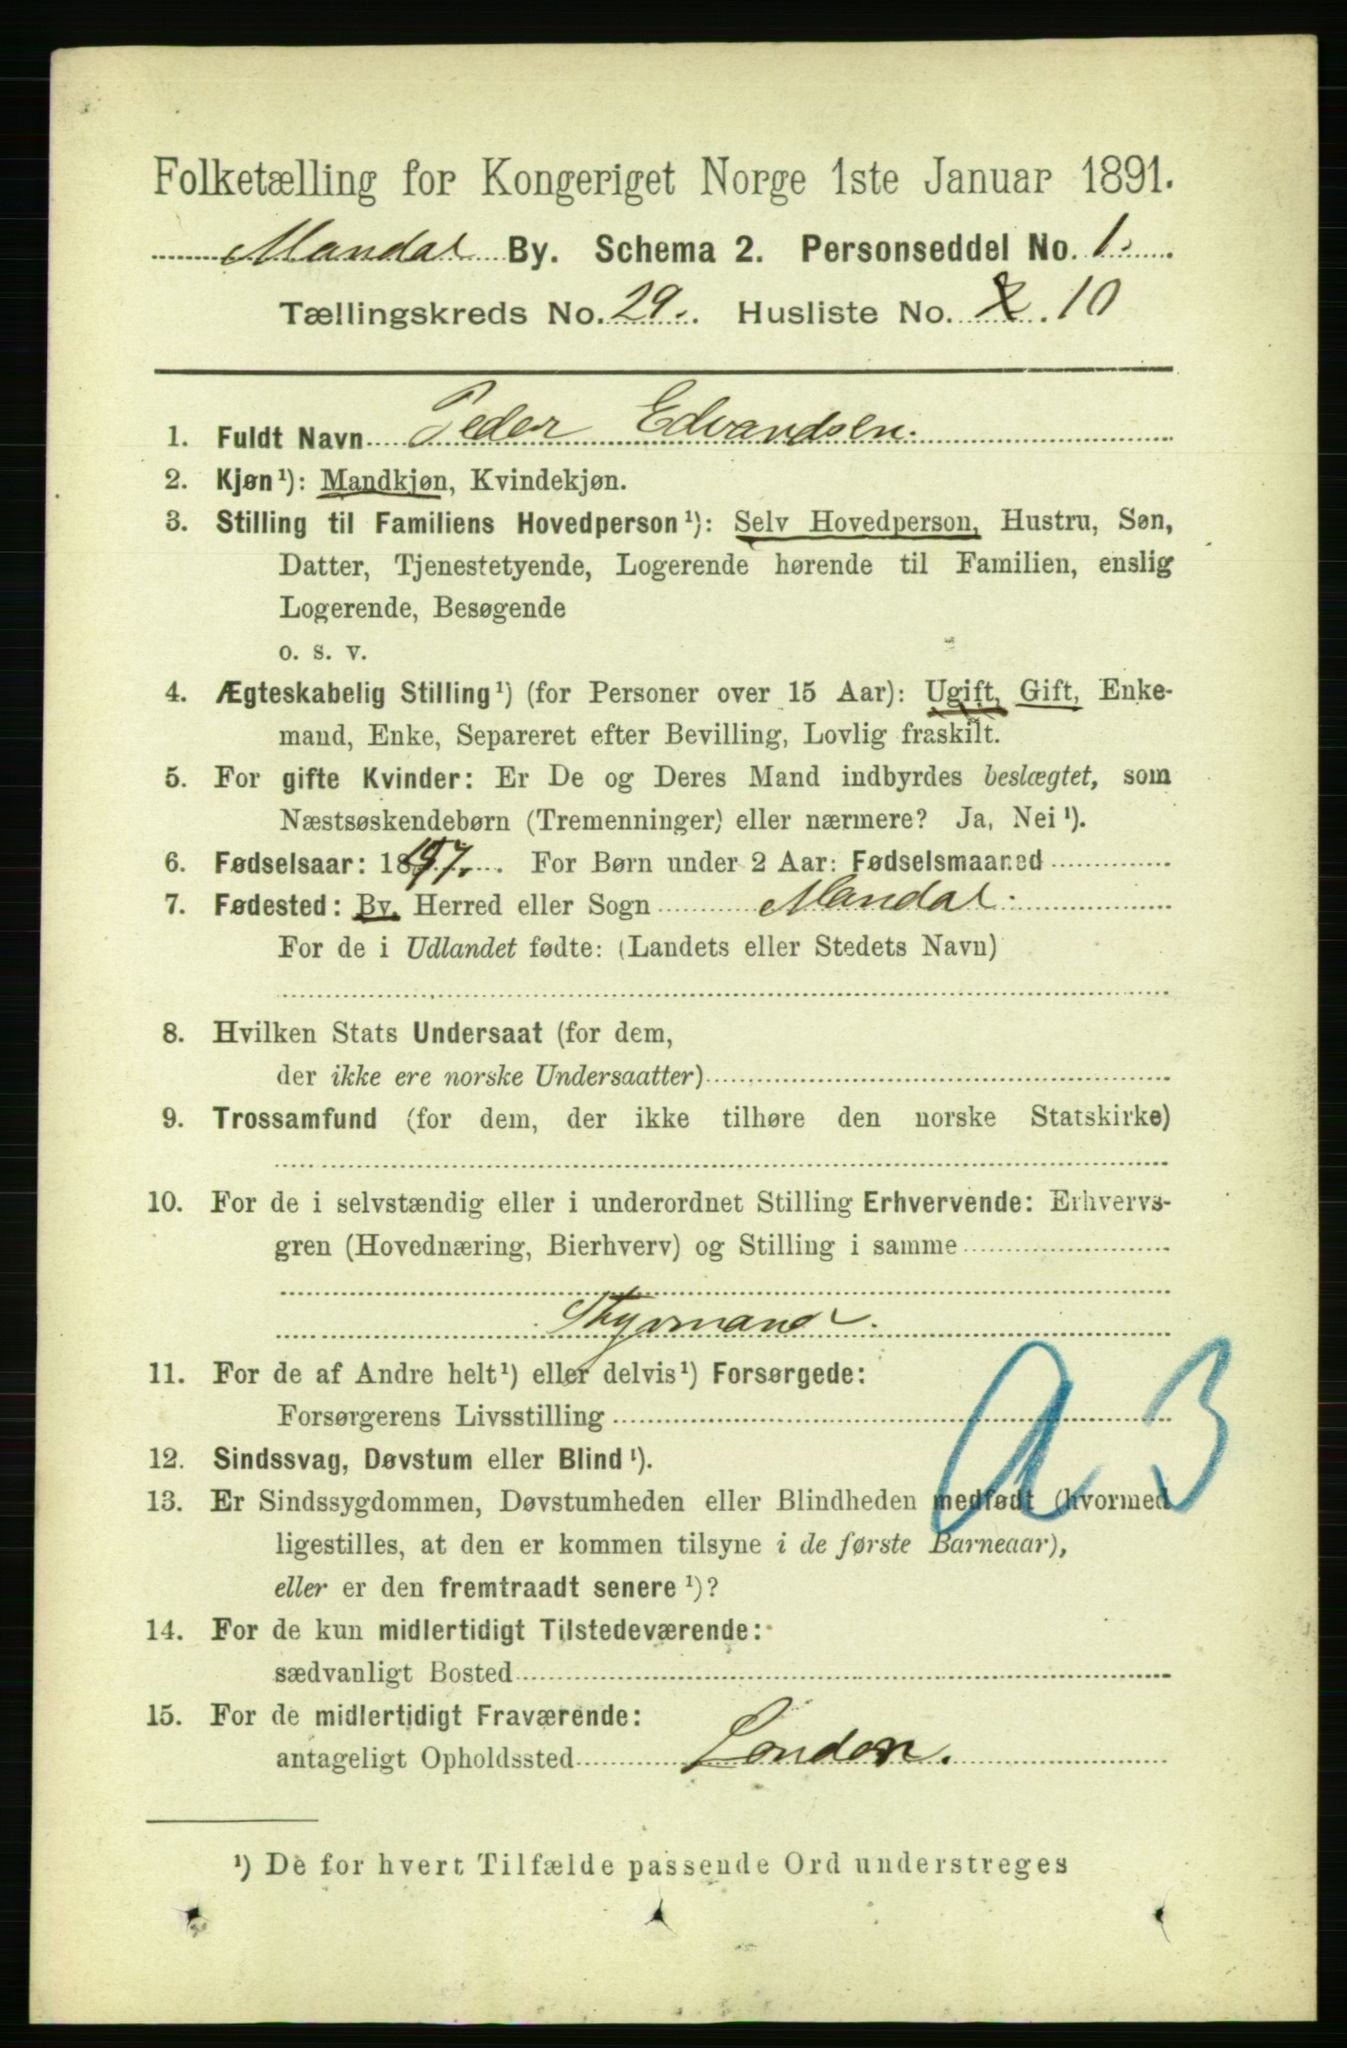 Folketælling for Kongeriget Norge 1ste Januar 1891.
Mandal By. Schema 2. Personseddel No. 1.
Tællingskreds No. 29. Husliste No. 10
1. Fuldt Navn Peder Edvardsen.
2. Kjøn¹): Mandkjøn, Kvindekjøn.
3. Stilling til Familiens Hovedperson¹): Selv Hovedperson, Hustru, Søn,
Datter, Tjenestetyende, Logerende hørende til Familien, enslig
Logerende, Besøgende
o. s. v.
4. Ægteskabelig Stilling¹) (for Personer over 15 Aar): Ugift, Gift, Enke-
mand, Enke, Separeret efter Bevilling, Lovlig fraskilt.
5. For gifte Kvinder: Er De og Deres Mand indbyrdes beslægtet, som
Næstsøskendebørn (Tremenninger) eller nærmere? Ja, Nei¹).
6. Fødselsaar: For Børn under 2 Aar: Fødselsmaaned
7. Fødested: By, Herred eller Sogn Mandal.
For de i Udlandet fødte: (Landets eller Stedets Navn)
8. Hvilken Stats Undersaat (for dem,
der ikke ere norske Undersaatter)
9. Trossamfund (for dem, der ikke tilhøre den norske Statskirke)
10. For de i selvstændig eller i underordnet Stilling Erhvervende: Erhvervs-
gren (Hovednæring, Bierhverv) og Stilling i samme
Styrmand.
11. For de af Andre helt¹) eller delvis¹) Forsørgede:
Forsørgerens Livsstilling
12. Sindssvag, Døvstum eller Blind¹).
13. Er Sindssygdommen, Døvstumheden eller Blindheden medfødt (hvormed
ligestilles, at den er kommen tilsyne i de første Barneaar),
eller er den fremtraadt senere¹)?
14. For de kun midlertidigt Tilstedeværende:
sædvanligt Bosted
15. For de midlertidigt Fraværende:
antageligt Opholdssted London.
¹) De for hvert Tilfælde passende Ord understreges